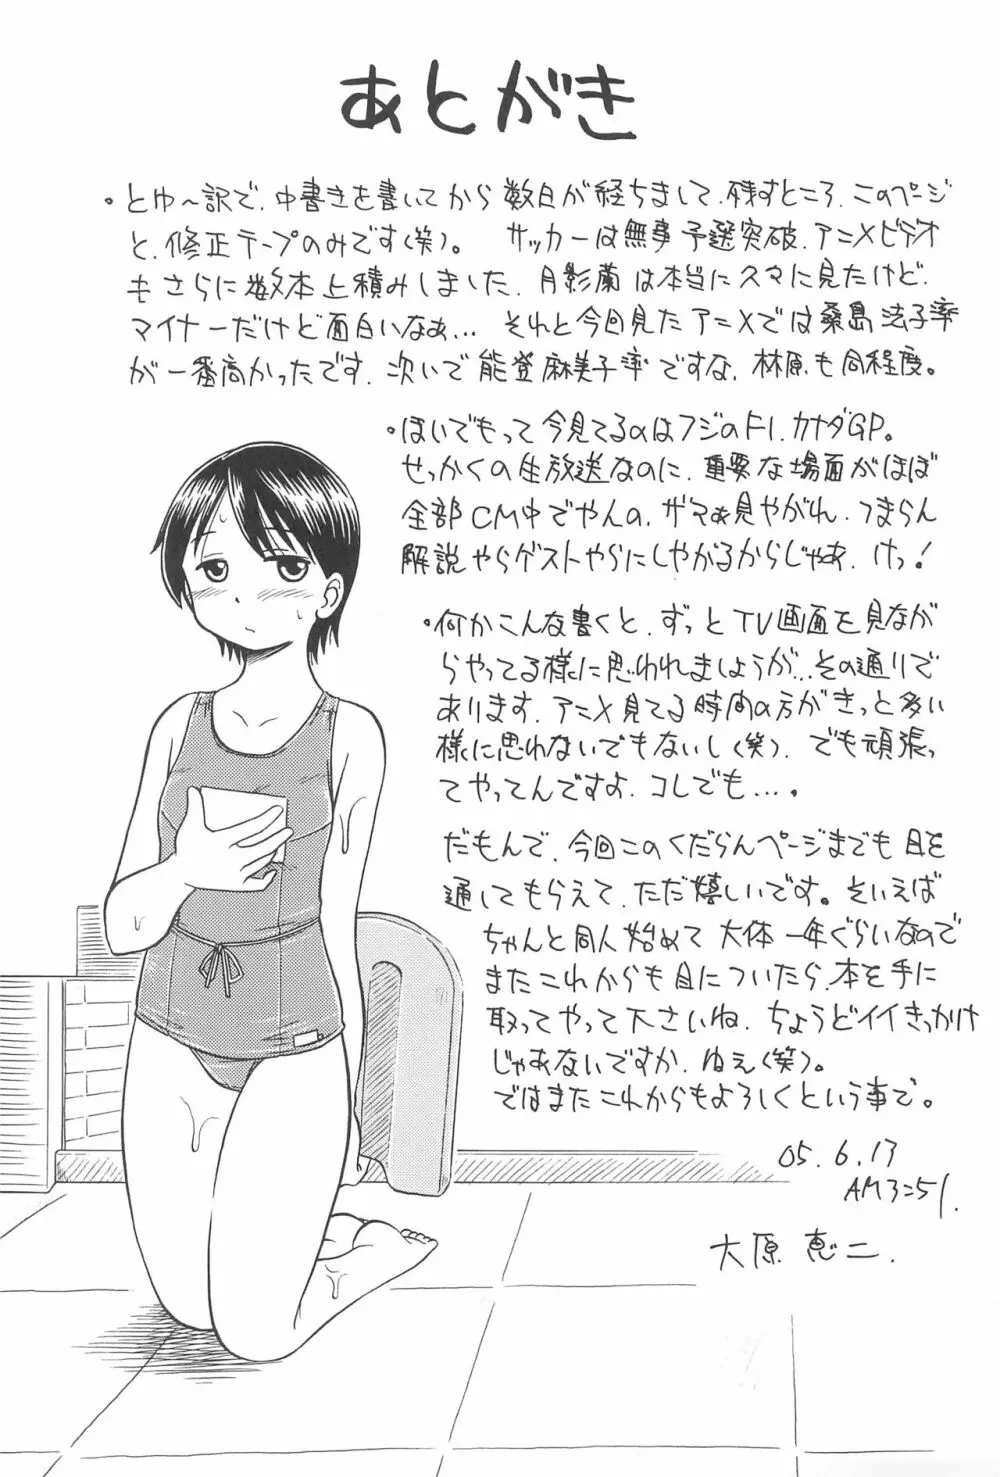 あとがき
・とゆ〜訳で、中書きを書いてから数日が経ちまして、残すところ、このページ
と、修正テープのみです(笑)。サッカーは無事予選突破、アニメビデオ
もさらに数本上積みしました、月影蘭は本当に久々に見たけど、
マイナーだけど面白いなぁ… それと今回見たアニメでは桑島法子率
が一番高かったです、次いで能登麻美子率ですな、林原も同程度。
・ほいでもって今見てるのはフジのF1、カナダGP。
せっかくの生放送なのに、重要な場面がほぼ
全部CM中でやんの、ザマぁ見やがれ、つまらん
解説やらゲストやらにしやがるからじゃあ、けっ!
・何かこんな書くと、ずっとTV画面を見なが
らやってる様に思われましょうが…その通りで
あります、アニメ見てる時間の方がきっと多い
様に思わないでもないし(笑)、でも頑張っ
てやってんですよ、コレでも…。
だもんで、今回このくだらんページまでも目を
通してもらえて、ただ嬉しいです。そいえば
ちゃんと同人始めて大体一年ぐらいなので
またこれからも目についたら、本を手に
取ってやって下さいね、ちょうどイイきっかけ
じゃあないですか、ねぇ(笑)。
ではまたこれからもよろしくという事で。
05.6.13
AM3:51.
大原恵二.